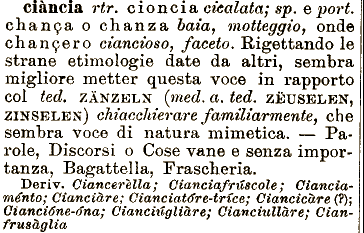 ciància rtr. cioncia cicalata; sp. e port.
chança o chanza baia, motteggio, onde
chançero ciancioso, faceto. Rigettando le
strane etimologie date da altri, sembra
migliore metter questa voce in rapporto
col ted. ZÄNZELN (med. a. ted. ZËUSELEN,
ZINSELEN) chiacchierare familiarmente, che
sembra voce di natura mimetica. — Pa-
role, Discorsi o Cose vane e senza impor-
tanza, Bagattella, Frascheria.
Deriv. Ciancerèlla; Cianciafrúscole; Ciancia-
ménto; Cianciàre; Cianciatóre-tríce; Ciancicàre (?);
Ciancióne-óna; Ciancïugliàre; Cianciullàre; Cian-
frusàglia